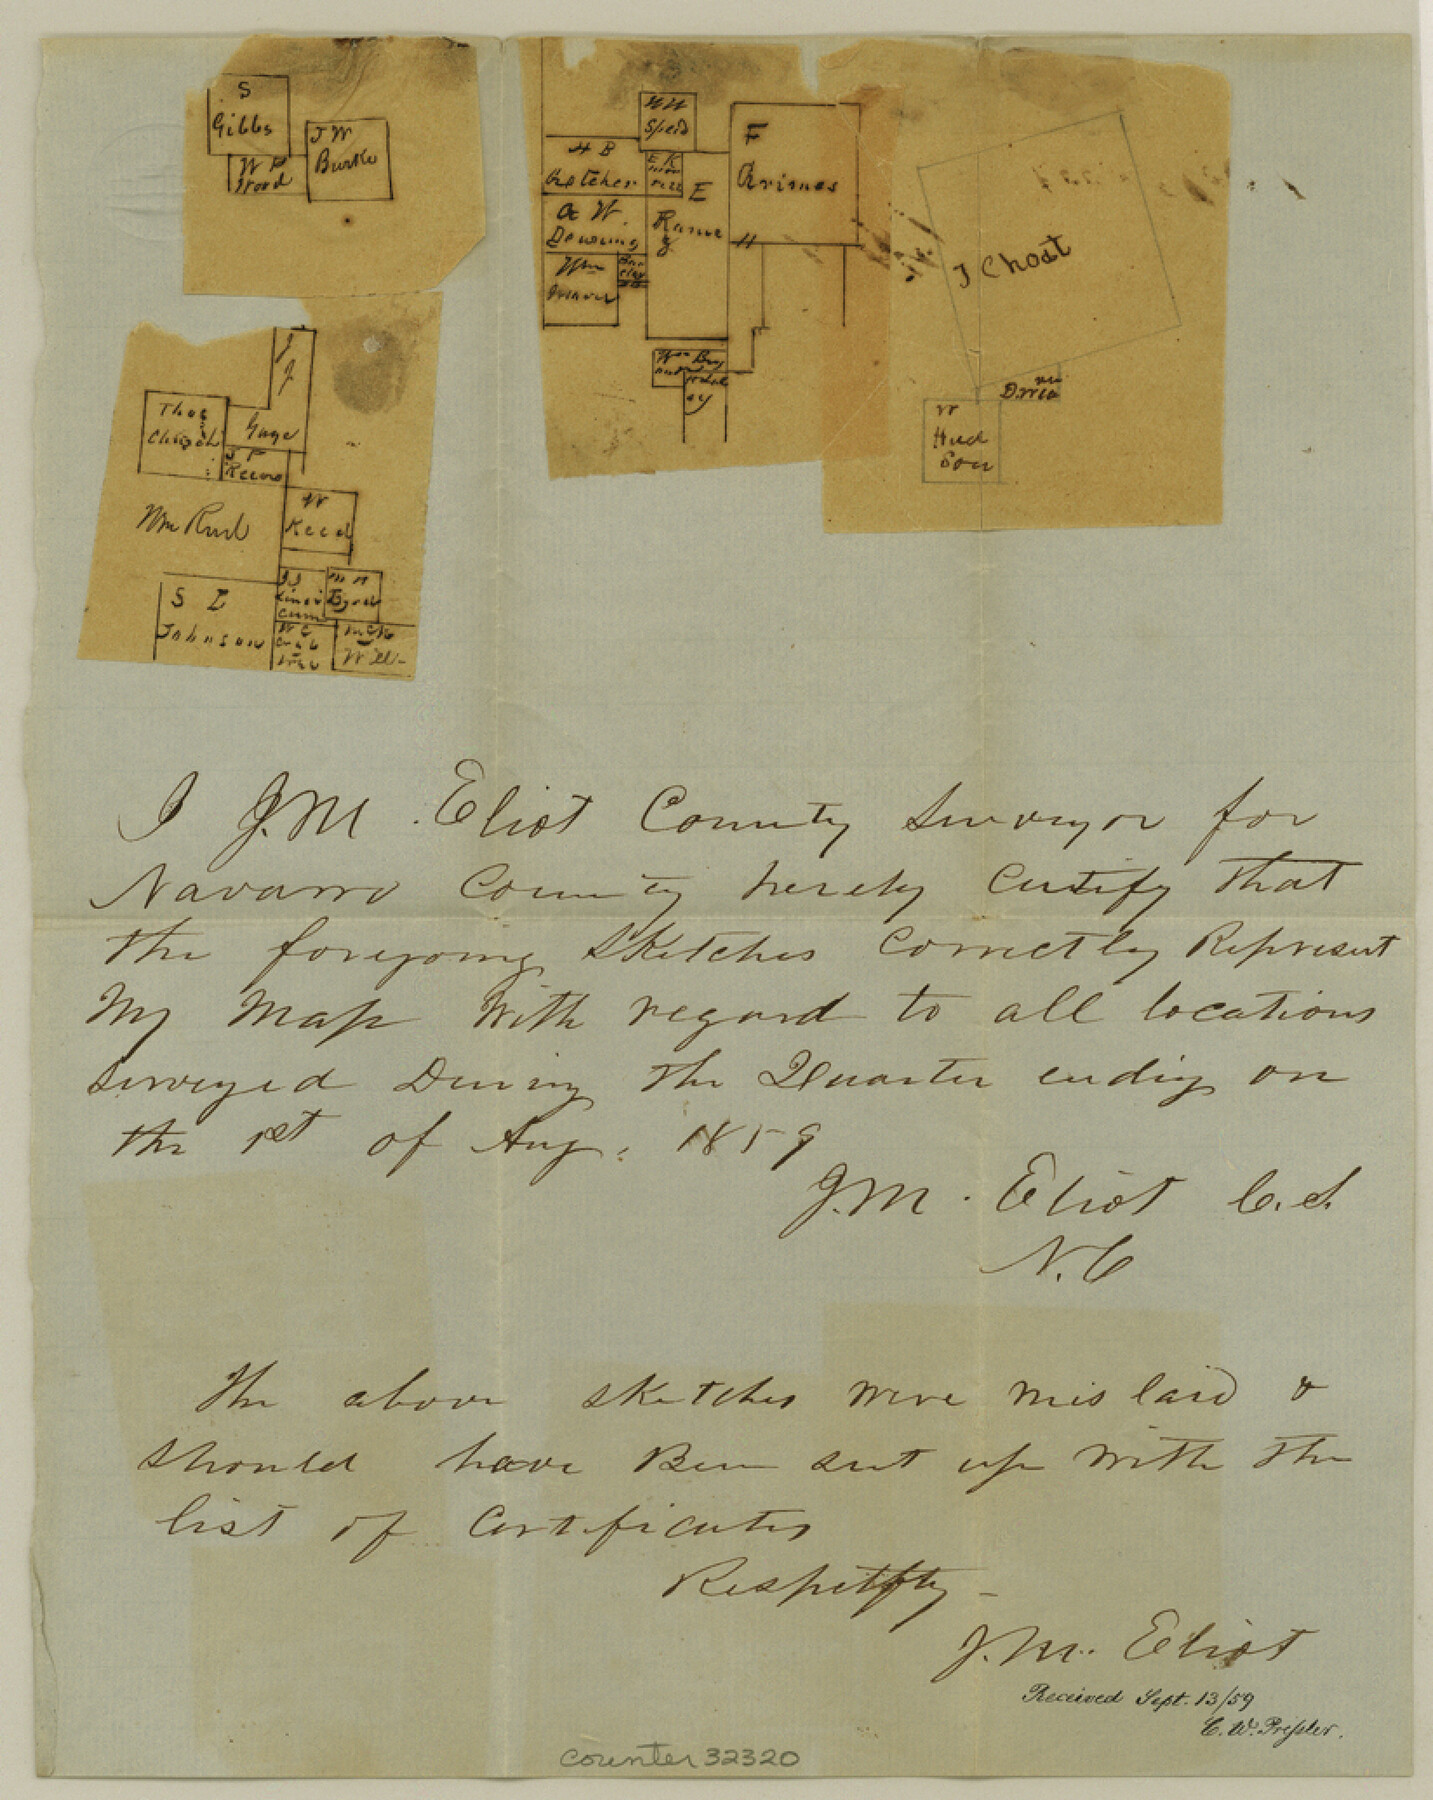 S
Gibbs
W P
Wood
J W
Burke
H H
Speid
H B
Ketcher
E K
E
Ramey
F
Arimes
H
A W
Dewing
Wm
Bar
clay
Wm Bry
J Choat
W
Hud
Son
J
J
Gage
Thos
Church
J F
Record
Wm Reed
W
Reed
S I
Johnson
J J
Linci
cum
M A
Byrd
W C
McK
Will-
I J.M. Eliot County Surveyor for
Navarro County hereby certify that
the foregoing sketches correctly Represent
My Map With regard to all locations
surveyed During the Quarter ending on
the 1st of Aug. 1859
J.M. Eliot C.S.
N.C
The above sketches were mislaid &
should have Been sent up with the
list of Certificates
Respetfly
J.M. Eliot
Received Sept. 13/59
C. W. Preſsler.
counter 32320